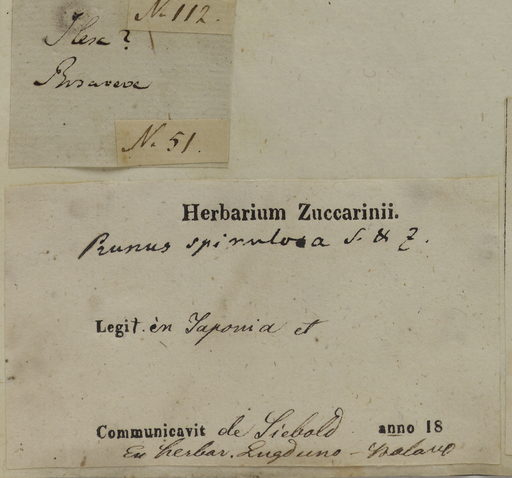 N. 112.
Ilex?
N. 51.
Herbarium Zuccarinii.
Prunus spinulosa S. & Z.
Legit. in Japonia et
Communicavit de Siebold anno 18
Ex herbar. Lugduno-Batavo